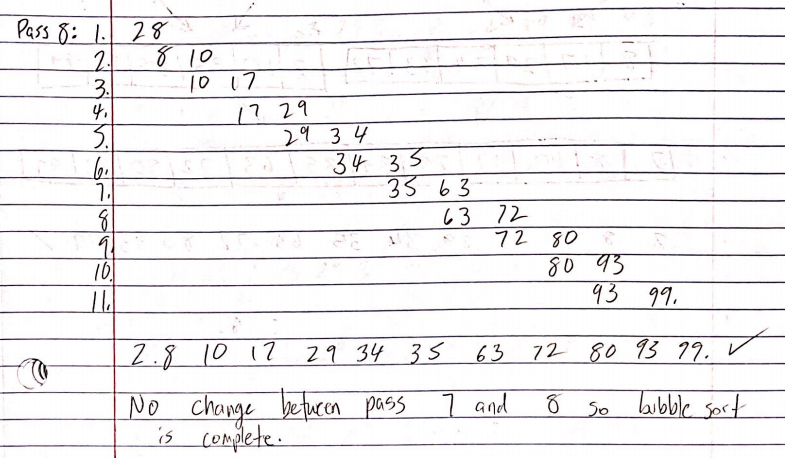 Pass 8: 1. 2 8
2. 8 10
3. 10 17
4. 17 29
5. 29 34
6. 34 35
7. 35 63
8 63 72
9. 72 80
10. 80 93
11. 93 99.
2.8 10 17 29 34 35 63 72 80 93 99. ✓
No change between pass 7 and 8 so bubble sort
is complete.